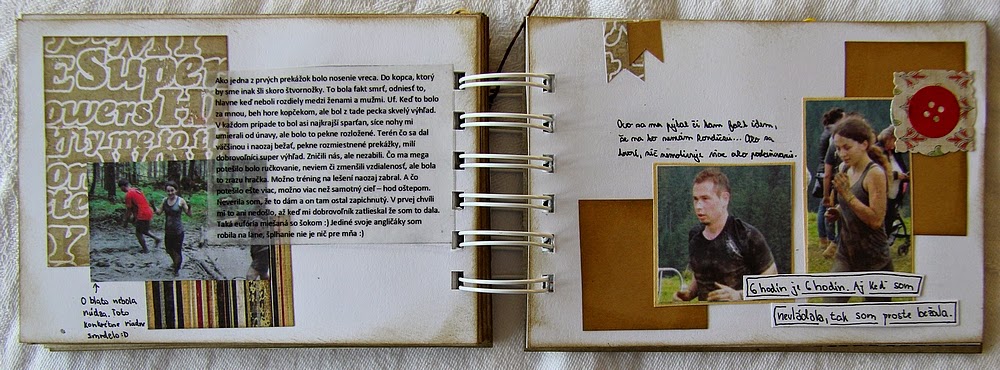 Super
owers H
Ako jedna z prvých prekážok bolo nosenie vreca. Do kopca, ktorý
by sme inak šli skoro štvornožky. To bola fakt smrť, odniesť to,
hlavne keď neboli rozdiely medzi ženami a mužmi. Uf. Keď to bolo
za mnou, beh hore kopčekom, ale bol z tade pecka skvelý výhľad.
V každom prípade to bol asi najkrajší sparťan, síce nohy mi
umierali od únavy, ale bolo to pekne rozložené. Terén čo sa dal
väčšinou i naozaj bežať, pekne rozmiestnené prekážky, milí
dobrovoľníci super výhľad. Zničili nás, ale nezabili. Čo ma mega
potešilo bolo ručkovanie, neviem či zmenšili vzdialenosť, ale bola
to zrazu hračka. Možno tréning na lešení naozaj zabral. A čo
potešilo ešte viac, možno viac než samotný cieľ – hod oštepom.
Neverila som, že to dám a on tam ostal zapichnutý. V prvej chvíli
mi to ani nedošlo, až keď mi dobrovoľník zatlieskal že som to dala.
Taká eufória miešaná so šokom :) Jediné svoje angličáky som
robila na lane, šplhanie nie je nič pre mňa :)
O blato nebola
núdza. Toto
konkrétne riadne
smrdelo :D
že na to nemám kondičku... Ako sa
hovorí, nič nemotivuje viac ako
6 hodín je 6 hodín. Aj keď som
nevládala, tak som proste bežala.